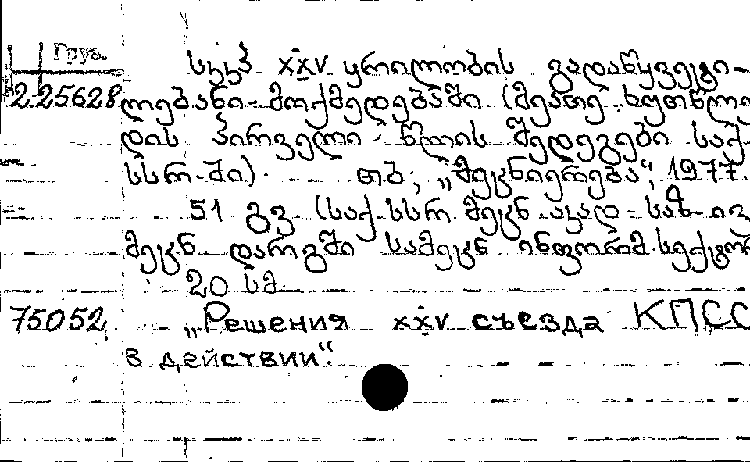 Груз.
სკკპ XXV ყრილობის გადაწყვეტი-
2.25628 ლებანი-მოქმედებაში (მეათე ხუთწლე
დის პირველი წლის შედეგები საქ.
სსრ-ში). თბ., „მეცნიერება“, 1977.
51 გვ (საქ. სსრ. მეცნ. აკად-
მეცნ დარგში სამეცნ ინფორმ. სექტორ
20 სმ
75052 „Решения XXV съезда КПСС
в действии“.